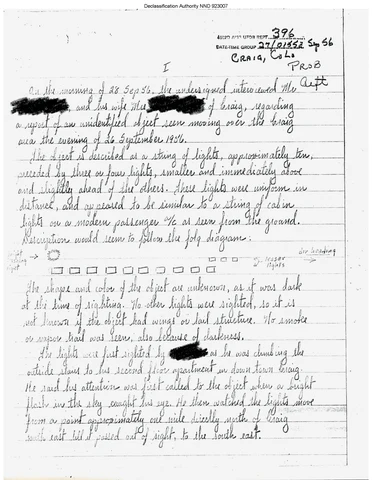 Declassification Authority NND 923007
396
DATE-TIME GROUP 27/0155Z Sep 56
CRAIG, COLO
PROB
Acft
I
On the morning of 28 Sep 56, the undersigned interviewed Mr
and his wife Mrs of Craig, regarding
a report of an unidentified object seen moving over the Craig
area the evening of 26 September 1956.
The object is described as a string of lights, approximately ten,
preceded by three or four lights, smaller and immediately above
and slightly ahead of the others. These lights were uniform in
distance, and appeared to be similar to a string of cabin
lights on a modern passenger a/c as seen from the ground.
Description would seem to follow the folg diagram:
light
lesser
lights
The shape and color of the object are unknown, as it was dark
at the time of sighting. No other lights were sighted, so it is
not known if the object had wings or tail structure. No smoke
or vapor trail was seen, also because of darkness.
The lights were first sighted by as he was climbing the
outside stairs to his second floor apartment in down town Craig.
He said his attention was first called to the object when a bright
flash in the sky caught his eye. He then watched the lights move
from a point approximately one mile directly north of Craig
south east till it passed out of sight, to the south east.